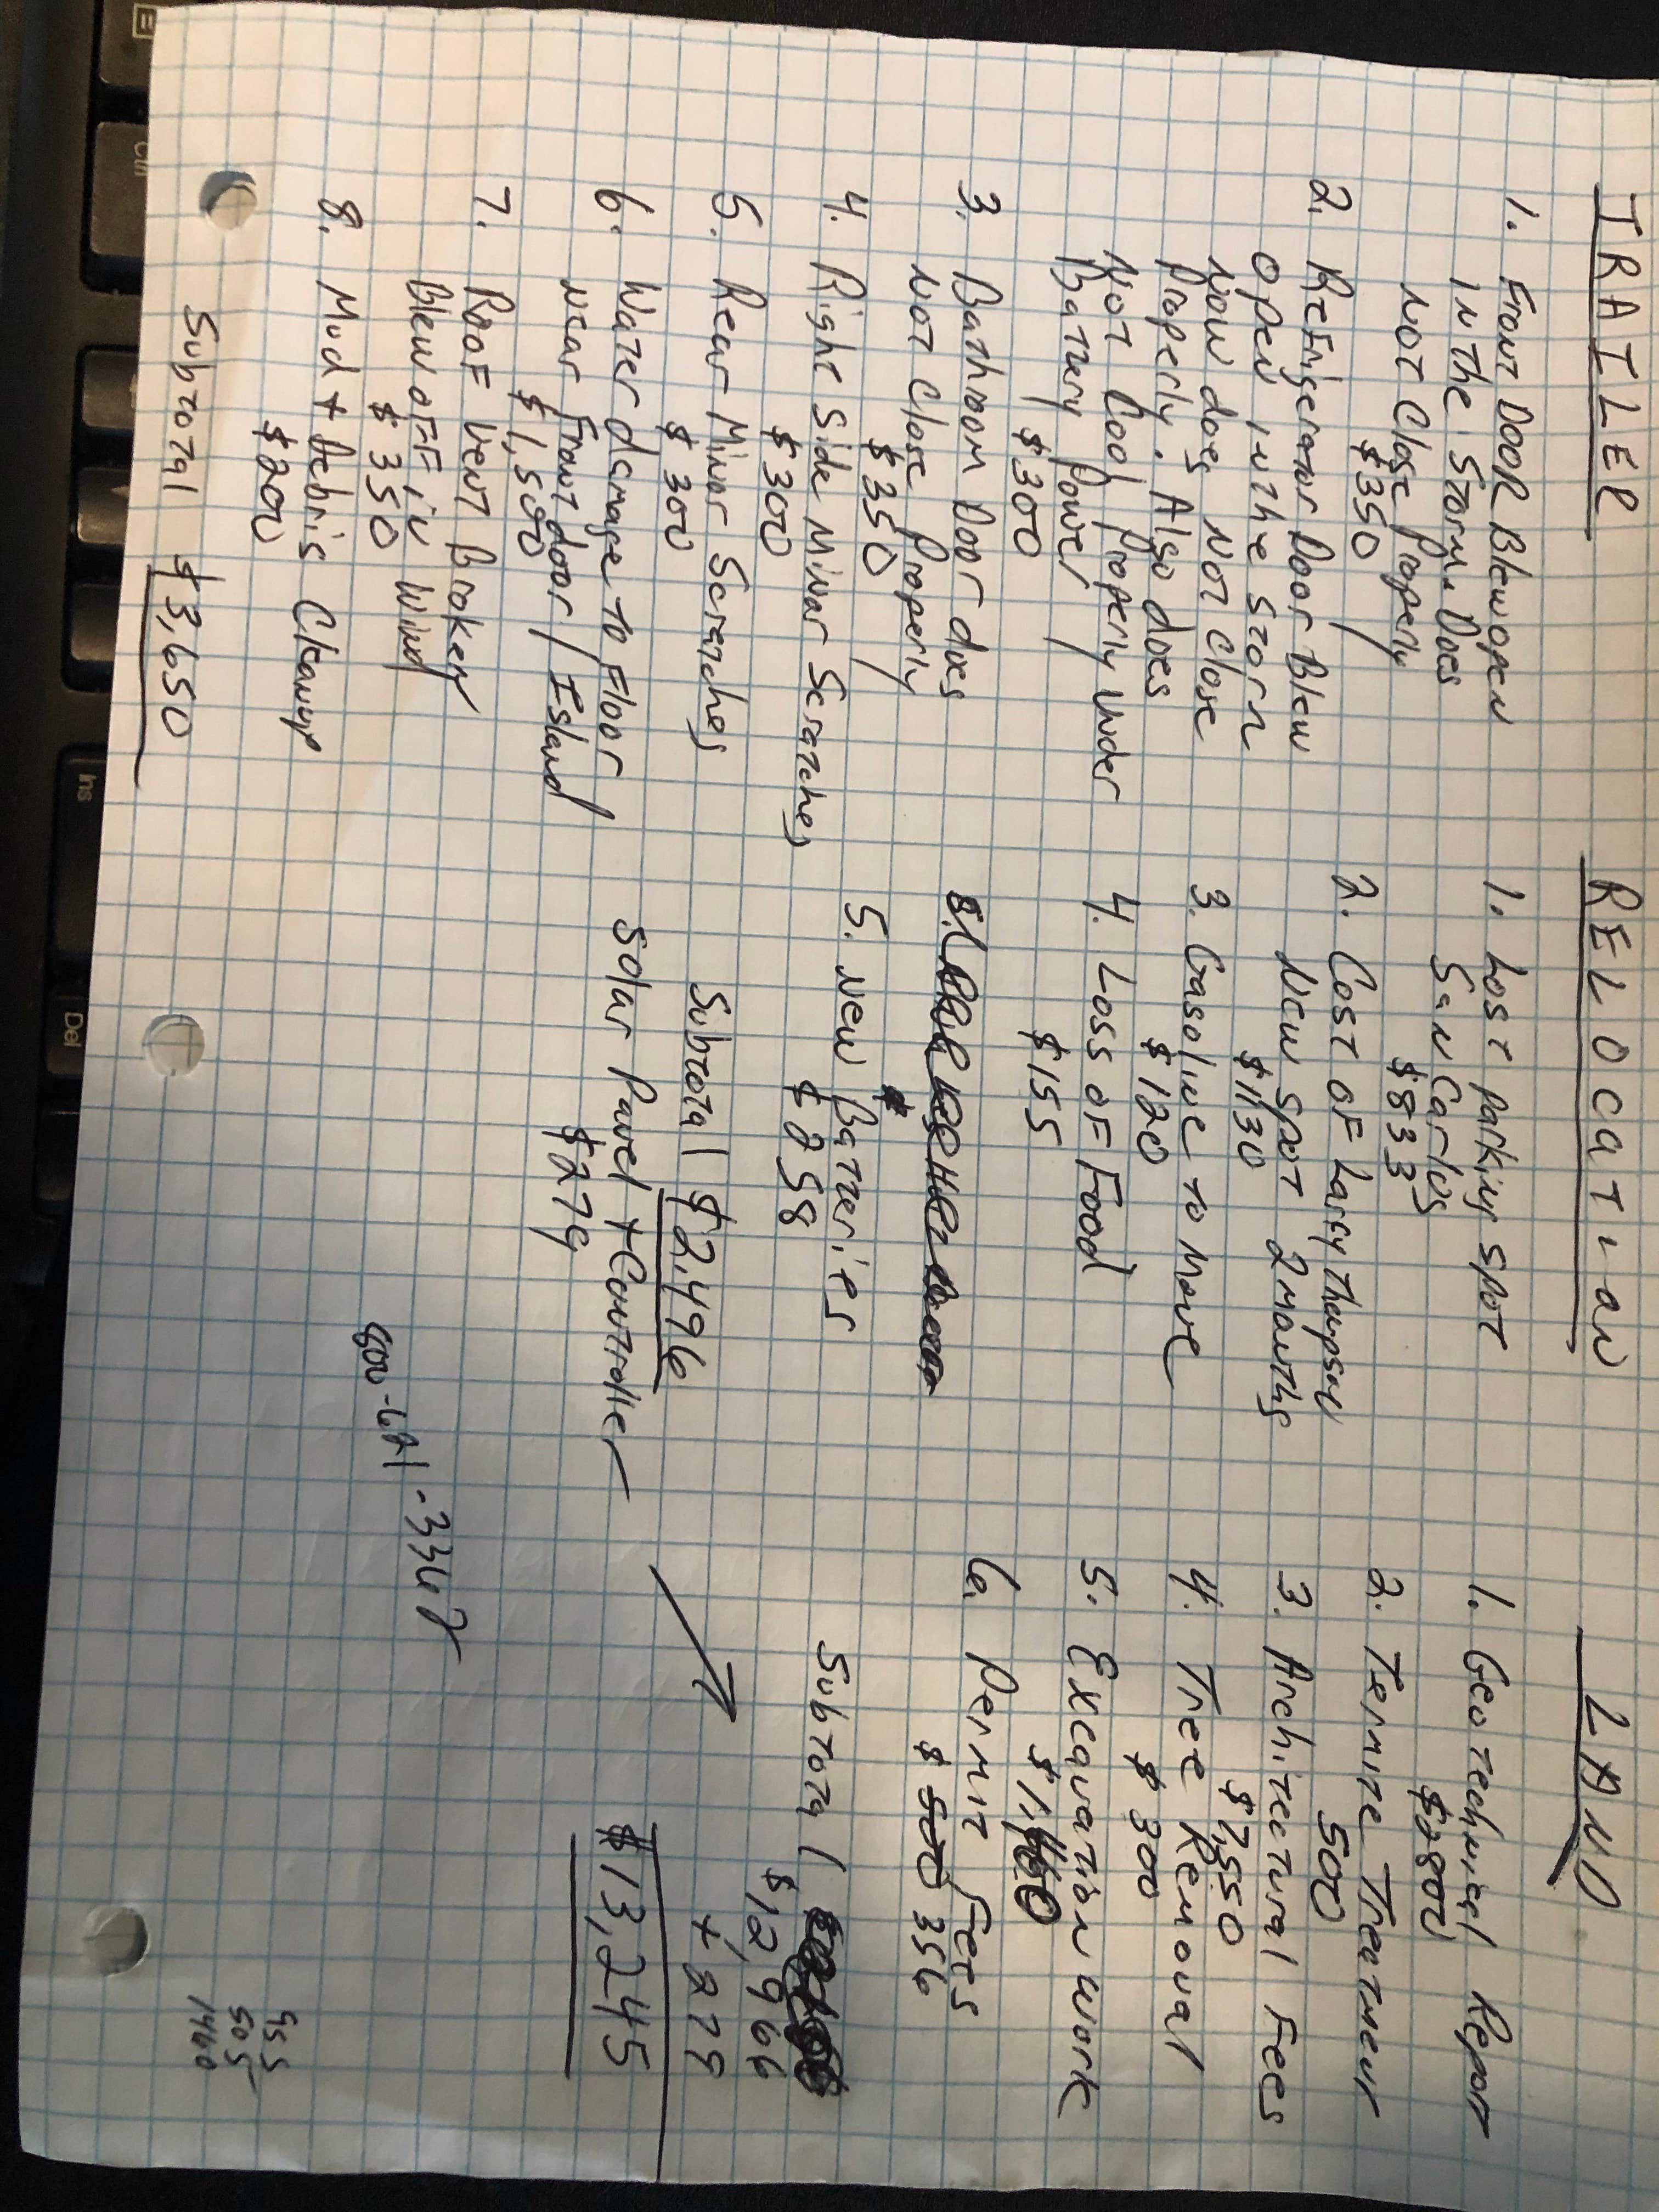 TRAILER
1. Front DOOR Blew open
in the storm. Does
Not Close Properly
$350
2. Refrigerator Door Blew
open in the storm
Now does Not Close
Properly. Also does
Not Cool Properly under
Battery Power
$300
3. Bathroom Door does
Not Close Properly
$350
4. Right Side Minor Scratches
$300
5. Rear Minor Scratches
$300
6. Water damage to Floor
near Front door / Island
$1,500
7. Roof Vent Broken
Blew off in Wind
$350
8. Mud + Debris Cleanup
$200
Subtotal $3,650
RELOCATION
1. Lost parking spot
San Carlos
$833
2. Cost of Larry Thompson
New Spot 2 months
$1130
3. Gasoline to Move
$120
4. Loss of Food
$155
5. New Batteries
$258
Subtotal $2,496
Solar Panel + Controller
$279
800-621-3362
LAND
1. Geotechnical Report
$2800
2. Termite Treatment
500
3. Architectural Fees
$7,550
4. Tree Removal
$300
5. Excavation work
$1,460
6. Permit Fees
$500 356
Subtotal
$12,966
+ 279
$13,245
955
505
1460
E
Ctrl
Ins
Del